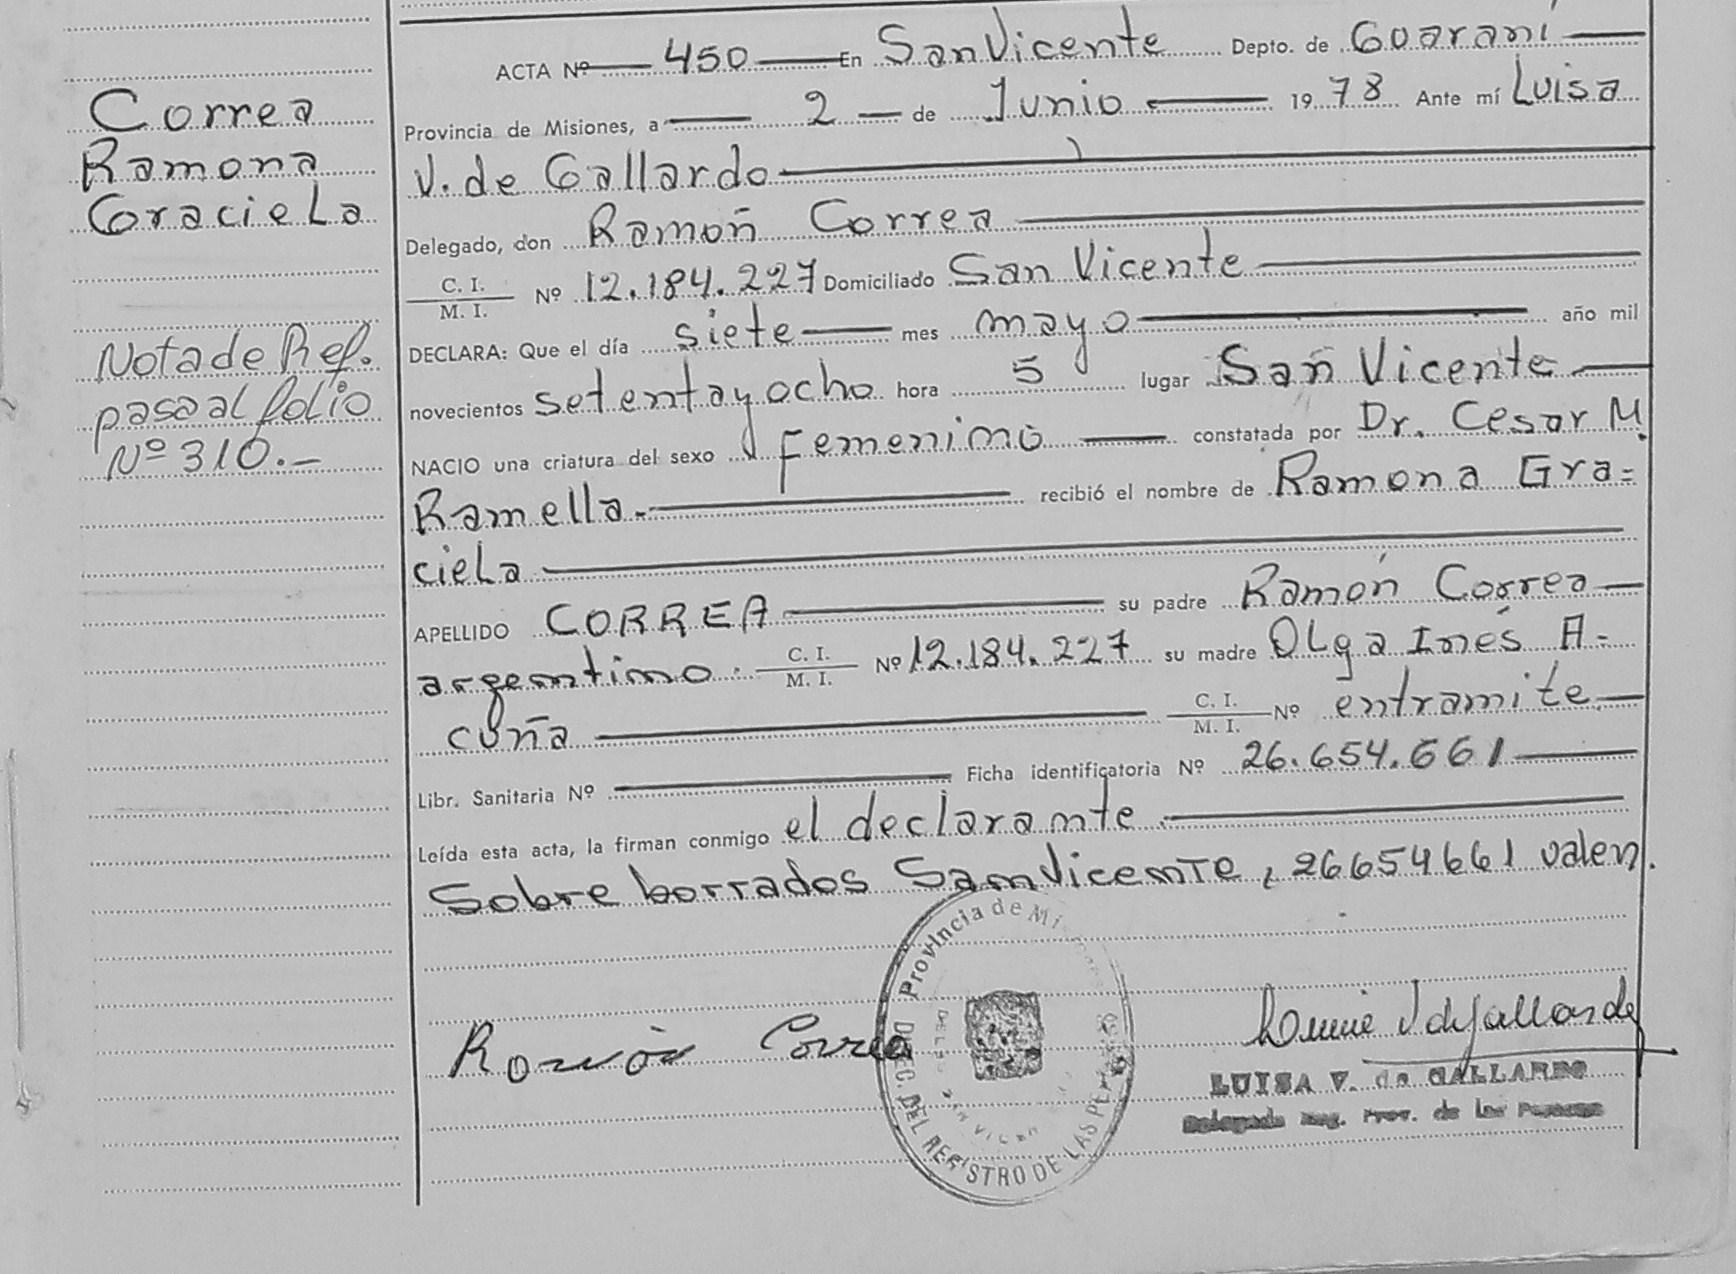 Correa
Ramona
Graciela
Nota de Ref.
pasa al folio
Nº 310.-
ACTA Nº 450 En San Vicente Depto. de Guarani
Provincia de Misiones, a 2 de Junio 1978 Ante mí Luisa
V. de Gallardo
Delegado, don Ramoñ Correa
C. I.
M. I. Nº 12.184.227 Domiciliado San Vicente
DECLARA: Que el día siete mes mayo año mil
novecientos setentayocho hora 5 lugar San Vicente
NACIO una criatura del sexo Femenimo constatada por Dr. Cesar M.
Ramella.- recibió el nombre de Ramona Gra=
ciela
APELLIDO CORREA su padre Ramón Correa
argentino. C. I.
M. I. Nº 12.184.227 su madre Olga Inés A=
cuña C. I.
M. I. Nº entramite
Libr. Sanitaria Nº Ficha identificatoria Nº 26.654.661
Leída esta acta, la firman conmigo el declarante.
Sobre borrados San Vicente, 26654661 valen.
Ramón Correa
Provincia de Mi
DEL REGISTRO DE LAS PE
LUISA V. de GALLARDO
Delegada Reg. Prov. de las Personas